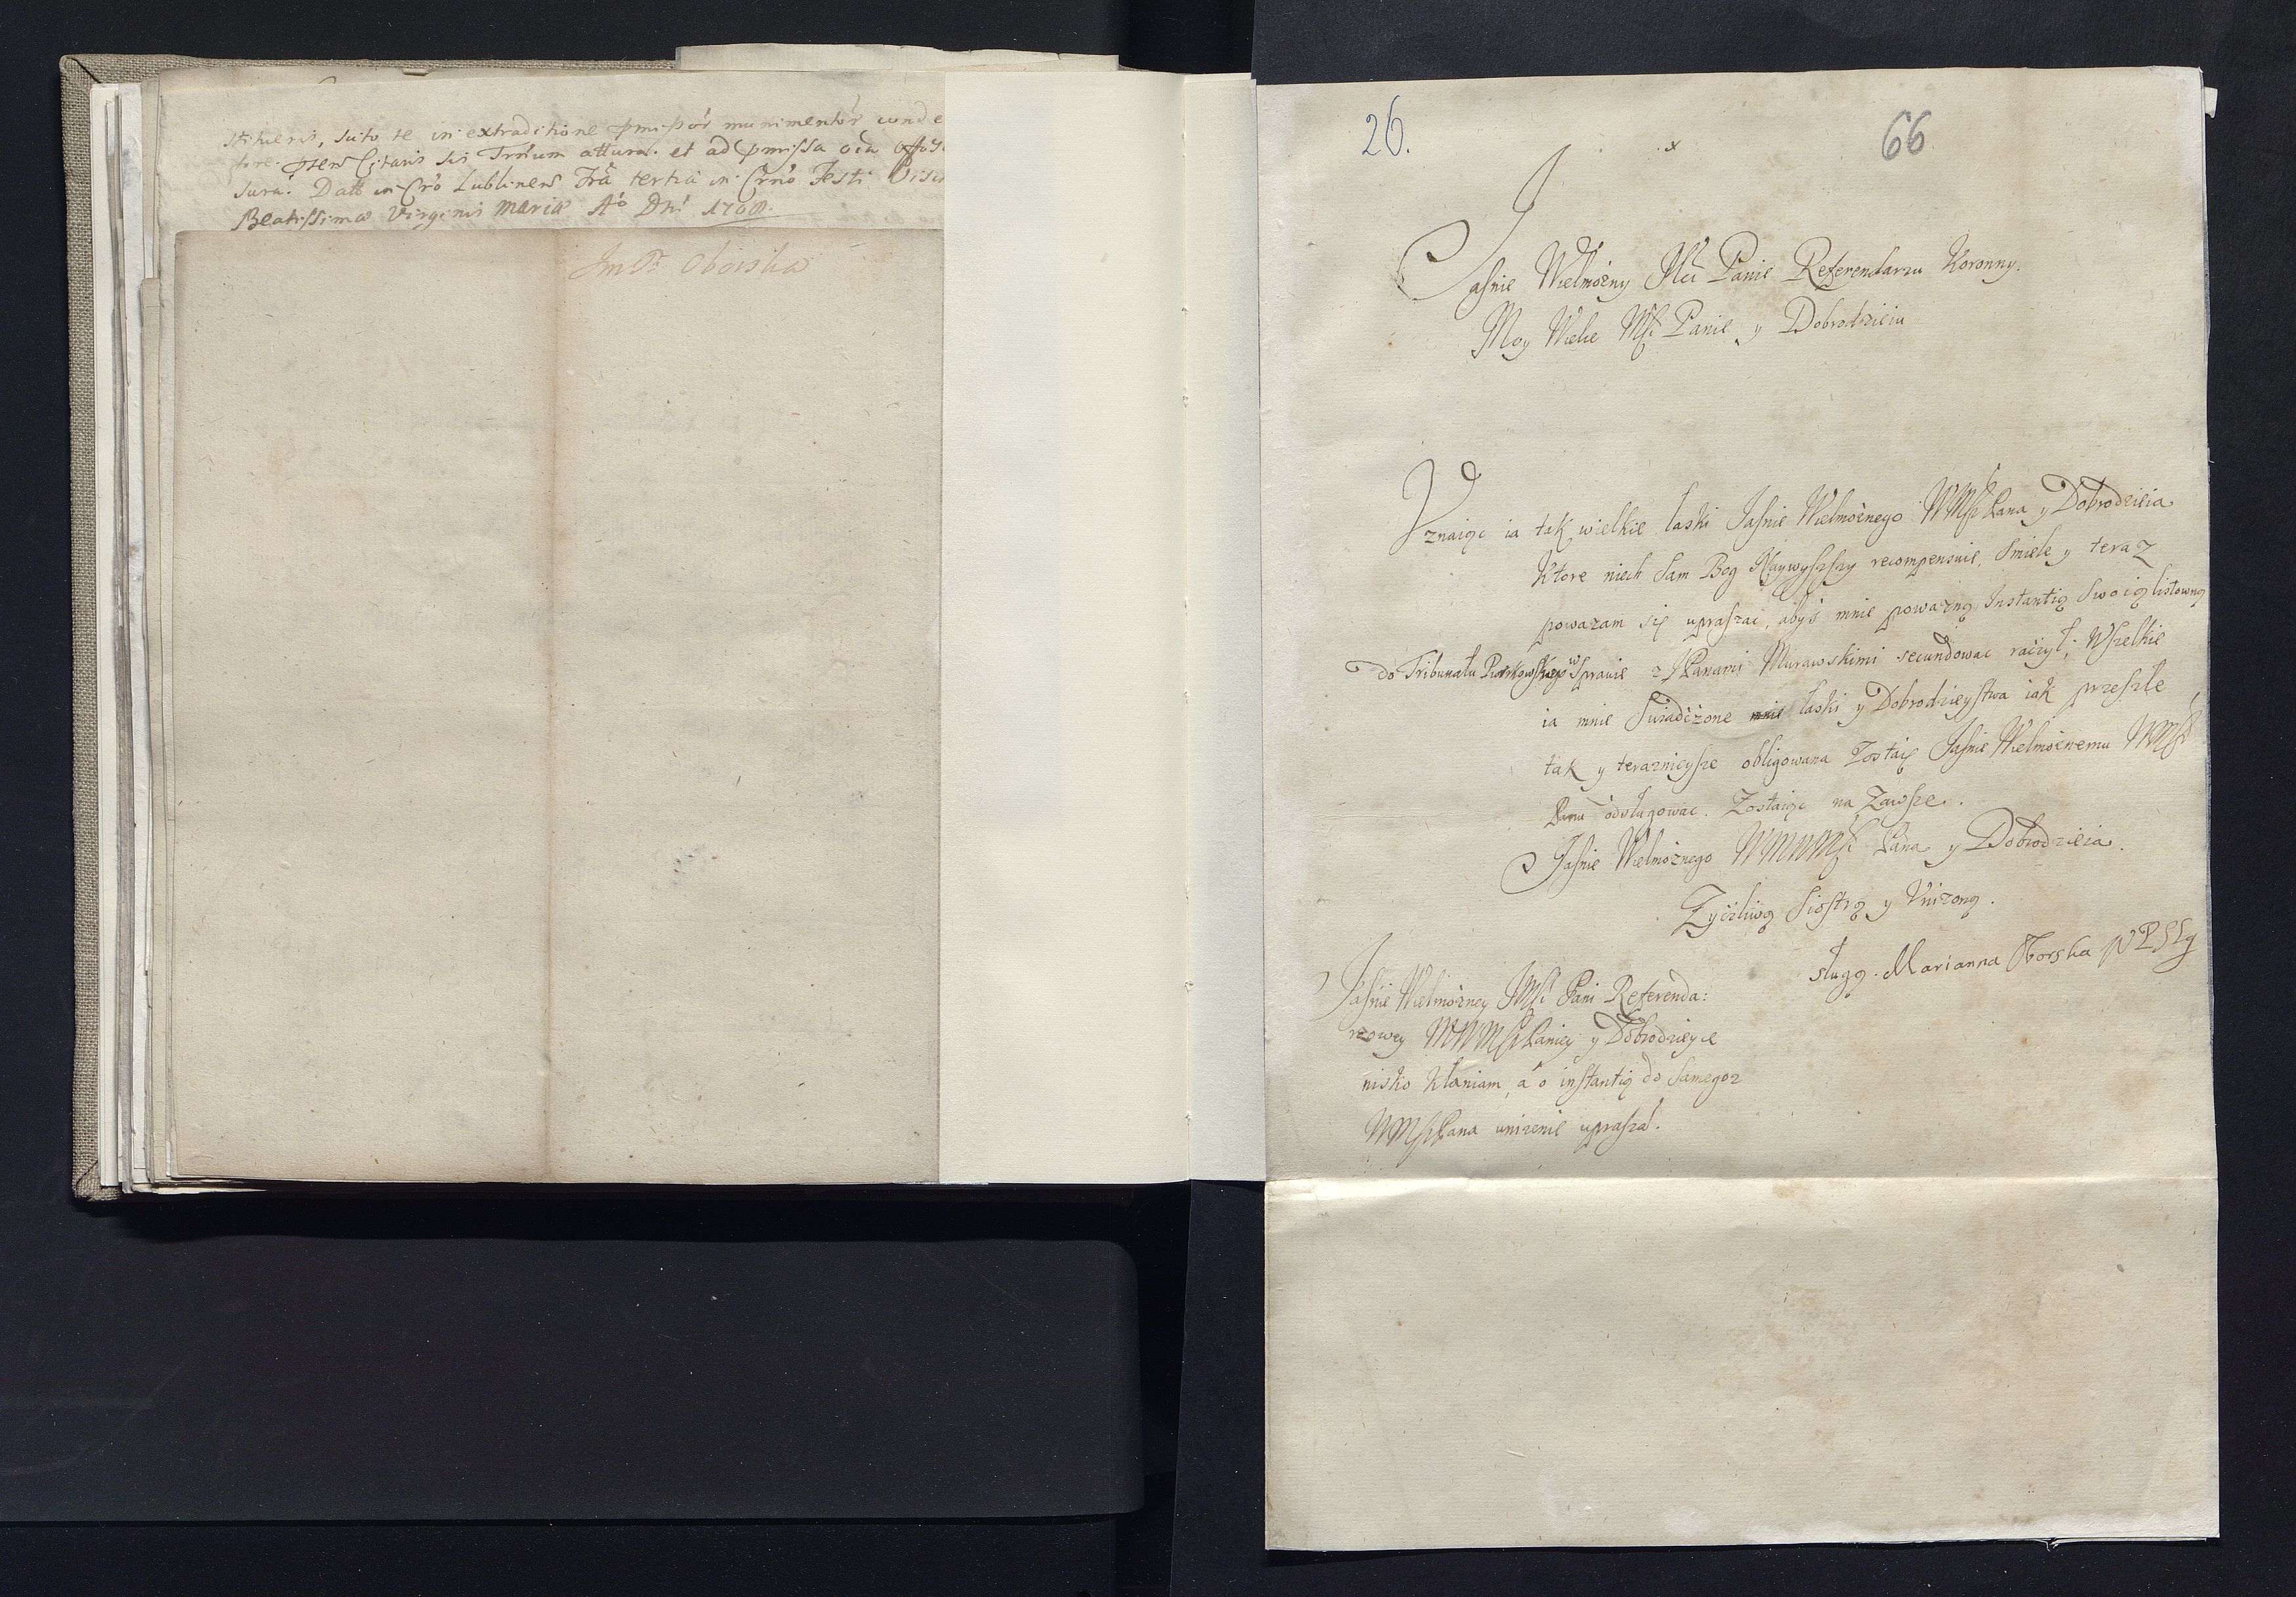 stiteris, scito te in extraditione munimentor
Citaris sis Trium attura. et ad pmissa
sura. Datt in Lublinens tertia in Festi
Beatissimæ Virginis Mariæ Aô Dni
Obórska
26.
66
x
Jasnie Wielmożny Mci Panie Referendarzu Koronny.
Moy Wielce Msći Panie y Dobrodzieiu
Vznaiąc ia tak wielkie łaski Jasnie Wielmożnego WMsći Pana y Dobrodzieia
Ktore niech Sam Bog Naywyszszy recompensuie, Smiele y teraz
powazam się upraszac, abyś mnie powazną Instantią Swoią listowną
do Tribunału Piotrkowskiego w Sprawie z JPanami Murawskimi secundowac raczył; Wszelkie
ia mnie Swiadczone mnie łaski y Dobrodzieystwa iak przeszłe
tak y teraznieysze obligowana Zostaię Jasnie Wielmożnemu WMsći
Panu odsługowac. Zostaiąc na Zawsze.
Jasnie Wielmożnego WMWMsći Pana y Dobrodzieia.
Zycżliwą Siostrą y Vnizoną.
sługą. Marianna Oborska
Jasnie Wielmożney JMsći Pani Referenda:
rzowey MWMsći Paniey y Dobrodzieyce
nisko kłaniam, a o instantią do Samegoz
WMsći Pana unizenie uprasza.